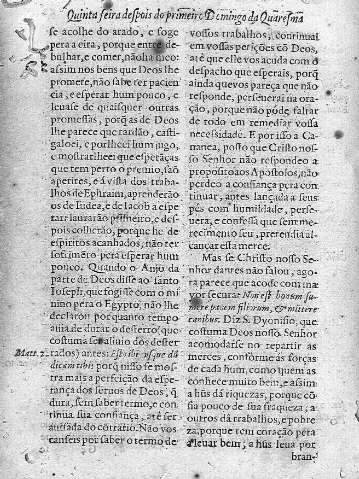 Quinta feira despois do primeiro Domingo da Quaresma
se acolhe do arado, e foge
pera a eira, porque entre de-
bulhar, e comer, não ha meo:
assim nos bens que Deos lhe
promete, não sabe ter pacien
cia, e esperar hum pouco, e
leuase de quaisquer outras
promessas, porq̃ as de Deos
lhe parece que tardão, casti-
galo ei, e porlheei hum jugo,
e mostrarlheei que esperãças
que tem perto o premio, são
apetites, e á vista dos traba-
lhos de Ephraim, aprenderáo
os de Iudea, e de Iacob a espe-
rar laurarão primeiro, e des-
pois colherão, porque he de
espiritos acanhados, não ter
sofrimẽto pera esperar hum
pouco. Quando o Anjo da
parte de Deos disse ao santo
Ioseph, que fogisse com o mi
nino pera o Egypto, não lhe
declarou por quanto tempo
auia de durar o desterro, (que
costuma ser aliuio dos dester
Matt. 2. rados) antes: Esto ibi usque dũ
dicam tibi: porq̃ nisso se mos-
tra mais a perfeição da espe-
rança dos seruos de Deos, q̃
dura, sem saber termo, e con
tinua sua confiança, até ser
auisada do cõtrario. Não vos
canseis por saber o termo de
vossos trabalhos, continuai
em vossas petições cõ Deos,
até que elle vos acuda com o
despacho que esperais, porq̃
ainda que vos pareça que não
responde, perseuerai na ora-
ção, porque não póde faltar
de todo em remediar vossa
necessidade. E por isso a Ca-
nanea, posto que Cristo nos-
so Senhor não respondeo a
proposito aos Apostolos, não
perdeo a confiança pera con
tinuar, antes lançada a seus
pés com humildade, perse-
uera, e confessa que sem me-
recimento seu, pretendia al-
cançar esta merce.
Mas se Christo nosso Se-
nhor dantes não falou, ago-
ra parece que acode com ma
yor secura: Non est bonum su-
mere panem filiorum, & mittere
canibus. Diz S. Dyonisio, que
costuma Deos nosso Senhor
acomodarse no repartir as
merces, conforme ás forças
de cada hum, como quem as
conhece muito bem, e assim
a hũs dá riquezas, porque cõ-
fia pouco de sua fraqueza; a
outros dá trabalhos, e pobre
za, porque tem coração pera
leuar bem; a hũs leua por
bran-